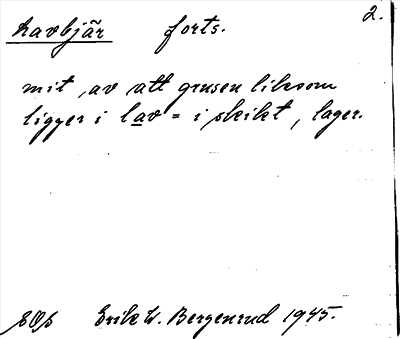 Lavbjär forts. 2.
mit, av att grusen liksom
ligger i lav = i skikt, lager.
SOB Erik W. Bergenrud 1945.